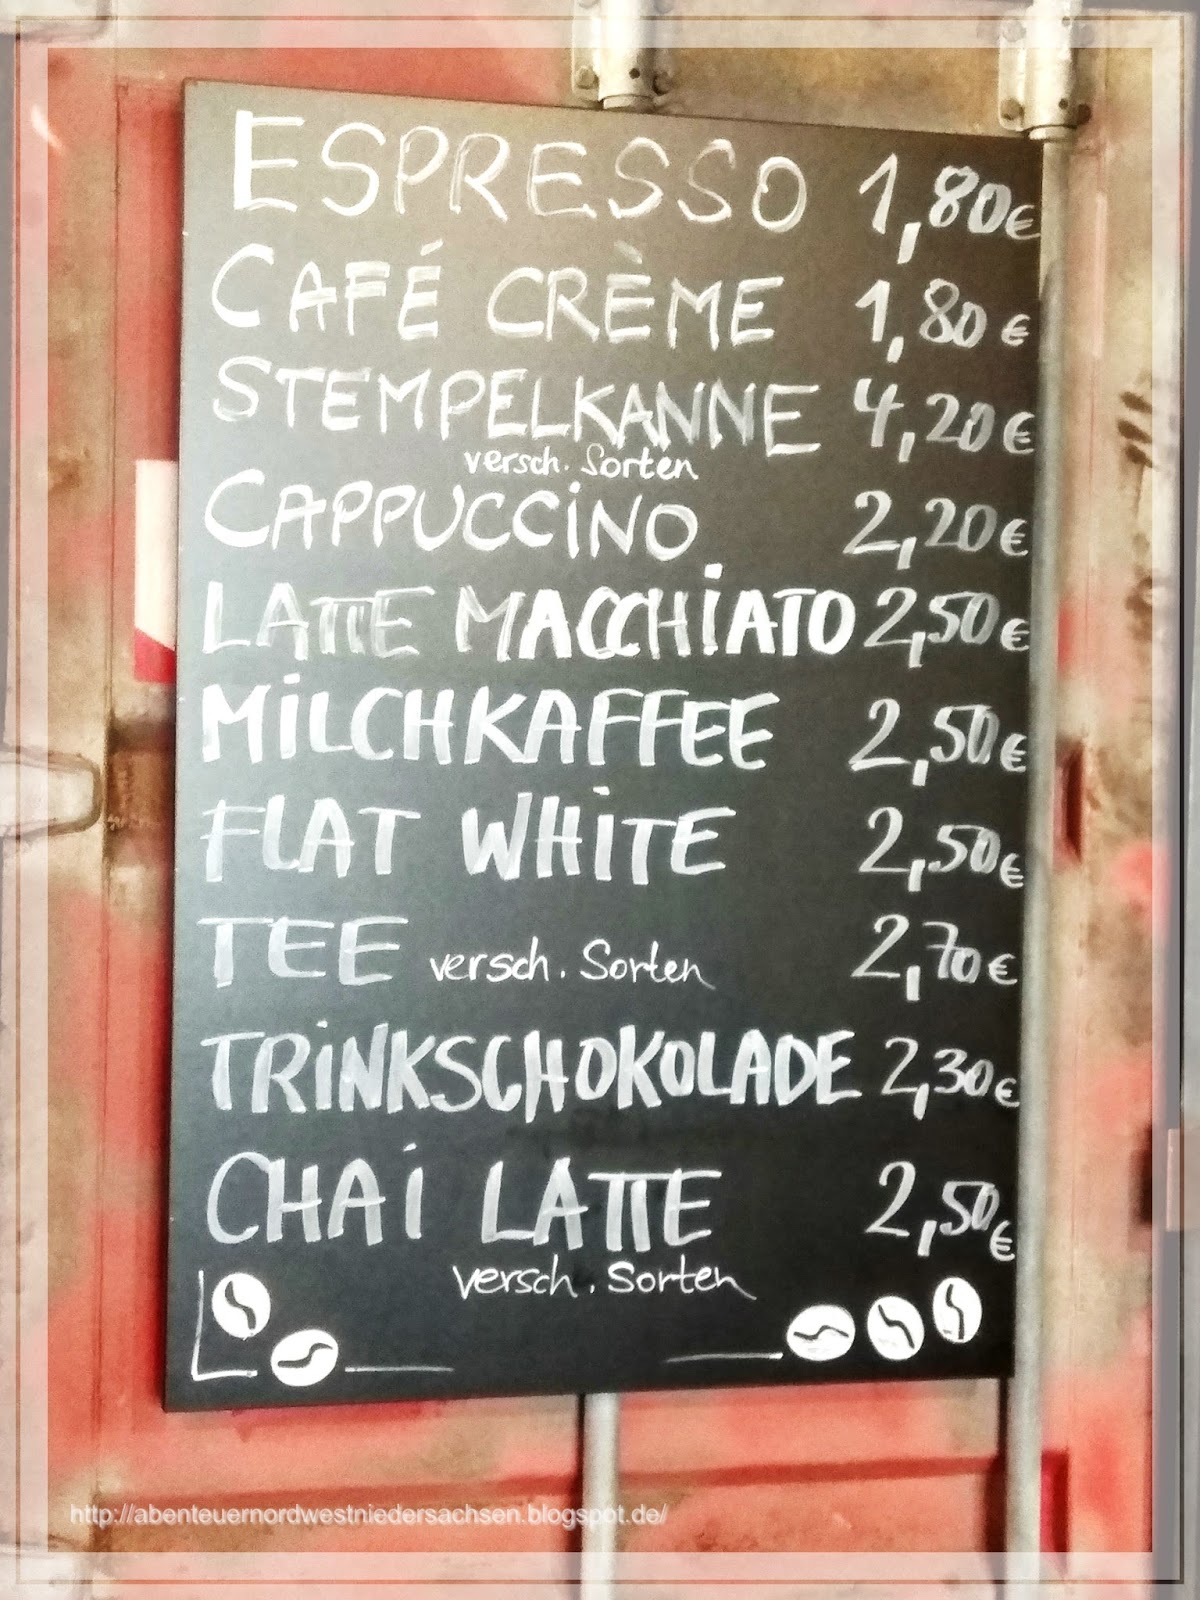 ESPRESSO 1,80€
CAFÉ CRÈME 1,80 €
STEMPELKANNE 4,20€
versch. Sorten
CAPPUCCiNO 2,20€
LATTE MACCHiATO 2,50€
MiLCHKAFFEE 2,50€
FLAT WHiTE 2,50€
TEE versch. Sorten 2,70€
TRiNKSCHOKOLADE 2,30€
CHAi LATTE 2,50€
versch. Sorten
http://abenteuernordwestniedersachsen.blogspot.de/